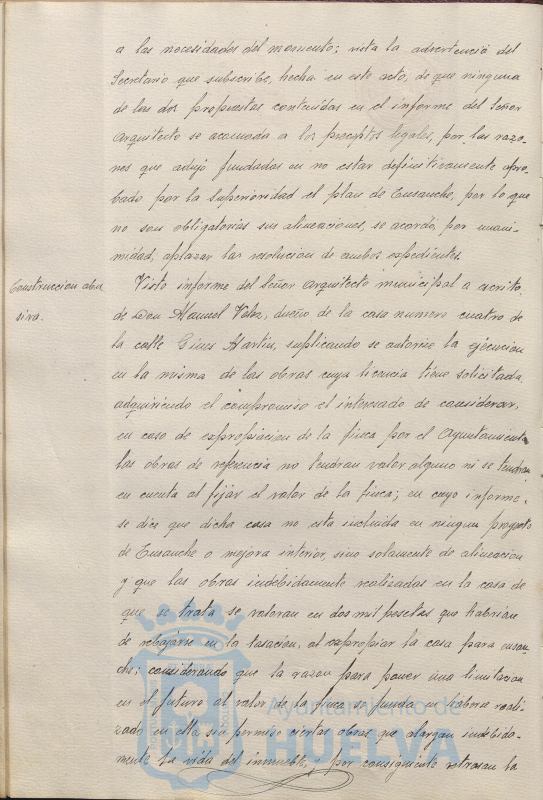 a las necesidades del momento; vista la advertencia del
Secretario que subscribe, hecha en este acto, de que ninguna
de las dos propuestas contenidas en el informe del Señor
Arquitecto se acomoda a los preceptos legales, por las razo-
nes que adujo fundadas en no estar definitivamente apro-
bado por la Superioridad el plan de Ensanche, por lo que
no son obligatorias sus alineaciones, se acordó, por unani-
midad, aplazar la resolucion de ambos expedientes.
Construccion abu
siva.
Visto informe del Señor Arquitecto municipal a escrito
de Don Manuel Velez, dueño de la casa numero cuatro de
la calle Gines Martin, suplicando se autorise la ejecucion
en la misma de las obras cuya licencia tiene solicitada,
adquiriendo el compromiso el interesado de considerar,
en caso de expropiacion de la finca por el Ayuntamiento
las obras de referencia no tendran valor alguno ni se tendran
en cuenta al fijar el valor de la finca; en cuyo informe
se dice que dicha casa no esta incluida en ningun proyecto
de Ensanche o mejora interior, sino solamente de alineacion
y que las obras indebidamente realizadas en la casa de
que se trata se valoran en dos mil pesetas que habrian
de rebajarse en la tasacion, al expropiar la casa para ensan-
che; considerando que la razon para poner una limitacion
en el futuro al valor de la finca se funda en haberse reali-
zado en ella sin permiso ciertas obras que alargan indebida-
mente la vida del inmueble, y por consiguiente retrasan la
Ayuntamiento de
HUELVA